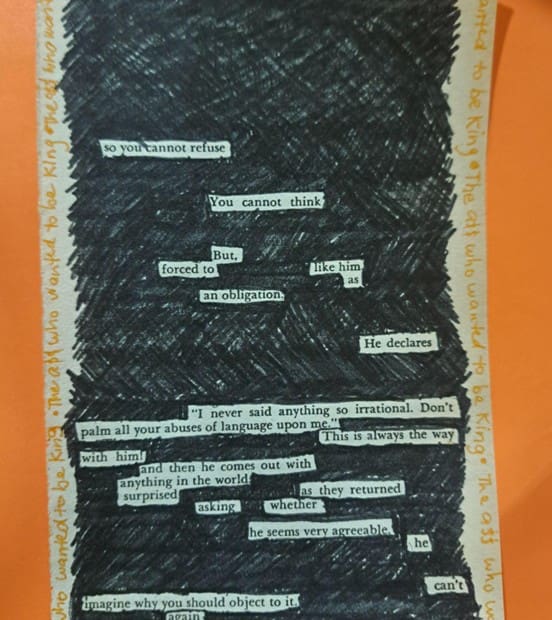 so you cannot refuse
You cannot think
But,
forced to like him
as
an obligation.
He declares
"I never said anything so irrational. Don't
palm all your abuses of language upon me."
This is always the way
with him!
and then he comes out with
anything in the world
surprised as they returned
asking whether
he seems very agreeable,
he
can't
imagine why you should object to it.
again
who wanted to be King • The a$$ who wanted to be King • The a$$ who want
anted to be King • The a$$ who wanted to be King • The a$$ who w